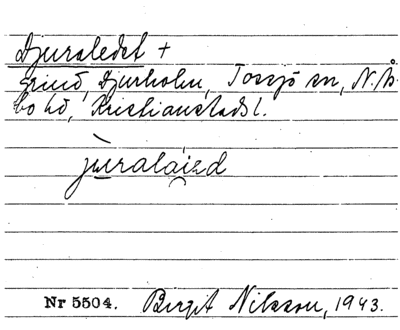 Djuraledet +
grind, Djurholm, Torsjö sn, N. Åsbo hd, Kristianstads l.
jùralàizd
Nr 5504. Birgit Nilsson, 1943.